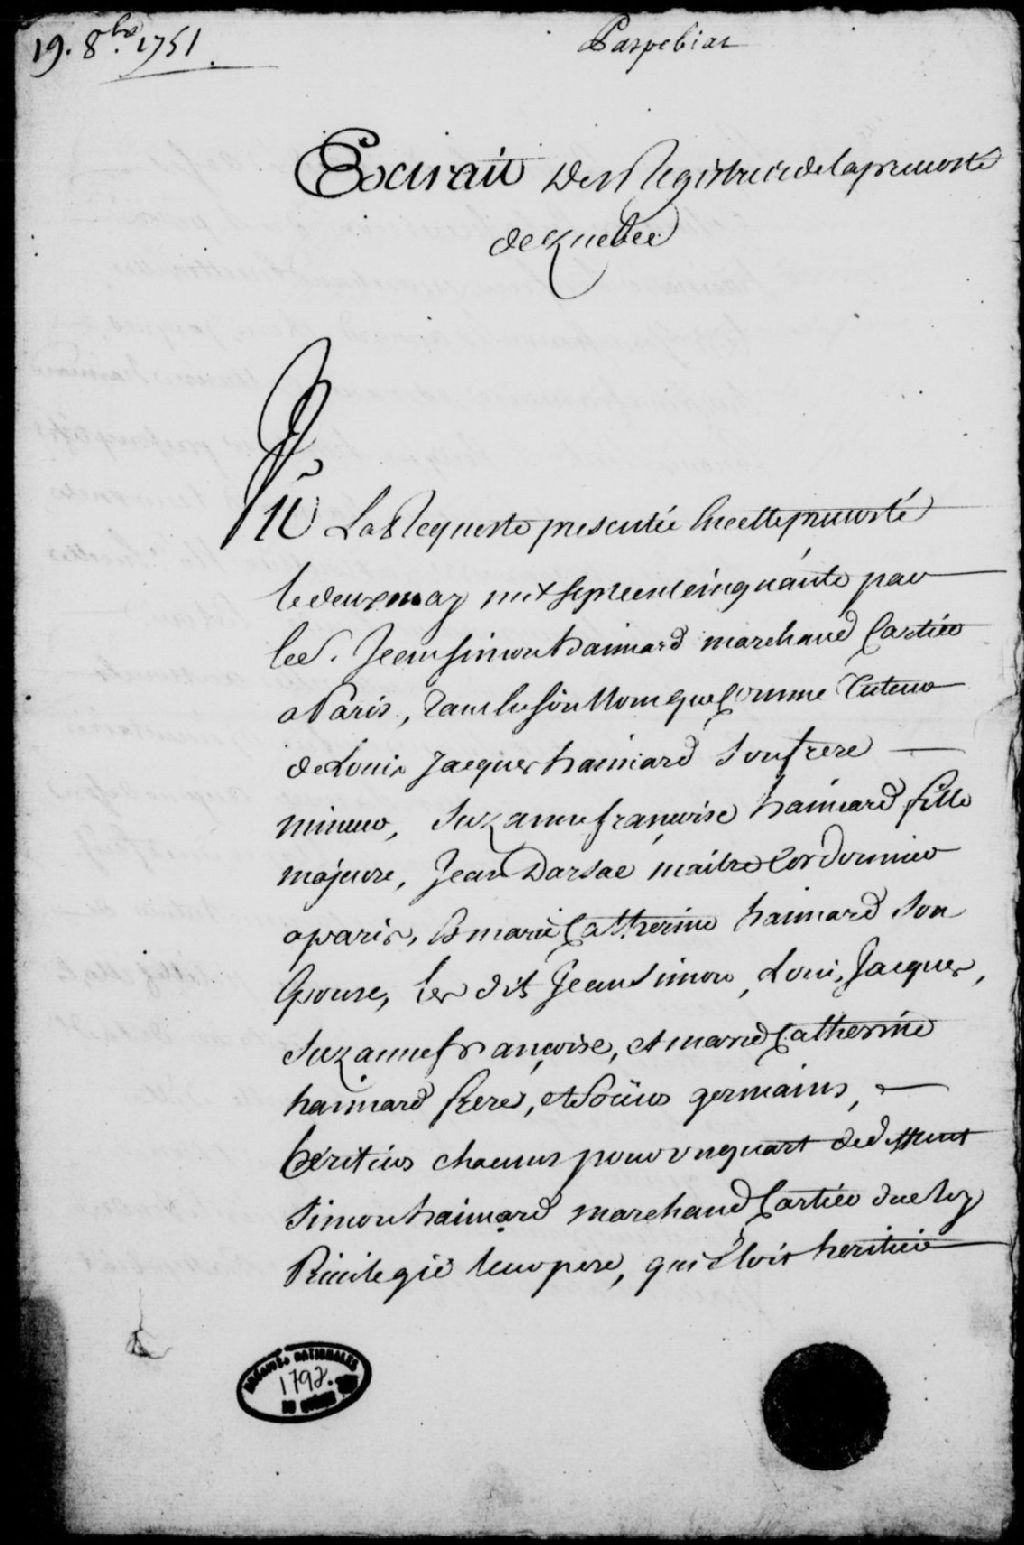 19. 8bre 1751.
Paspebiac
Extrait Des Registres de la prevosté
de Quebec
Vu La Requeste presentée En cette prevosté
le deux may mil sept cent cinquante par
le s. Jean Simon haimard marchand Cartier
a Paris, tant En son Nom que Comme Tuteur
de Louis Jacques haimard Son frere
mineur, Suzanne françoise haimard fille
majeure, Jean Darsac maitre Cordonnier
a paris, Et marie Catherine haimard Son
Epouse, les dits Jean Simon, Louis Jacques,
Suzanne françoise, et marie Catherine
haimard freres, et Sœurs germains,
héritiers chacuns pour un quart de deffunt
Simon haimard marchand Cartier du Roy
Privilegié leur pere, qui Etoit heritier
ARCHIVES NATIONALES
1792.